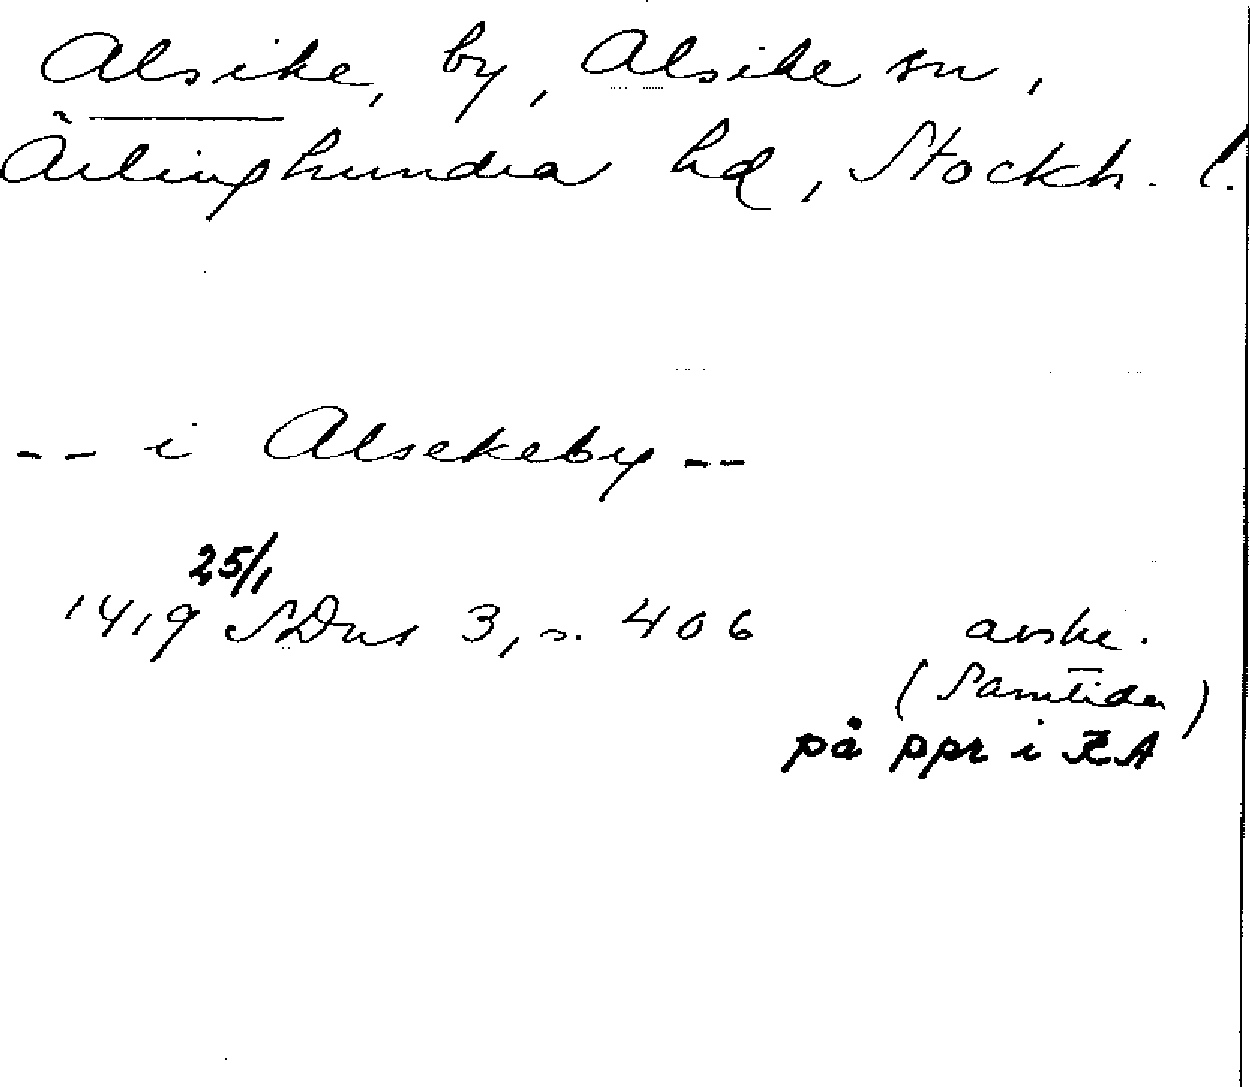 Alsike, by, Alsike sn,
Ärlinghundra hd, Stockh. l.
-- i Alsekeby --
25/1
1419 SDns 3, s. 406 avskr.
(Samtida)
på ppr i RA